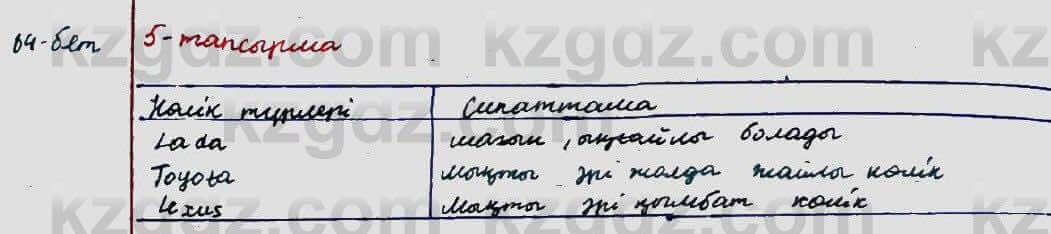 64-бет 5-тапсырма
Көлік түрлері Сипаттама
Lada шағын, ыңғайлы болады
Toyota Мықты әрі жолда жайлы көлік
Lexus Мықты әрі қымбат көлік
kzgdz.com